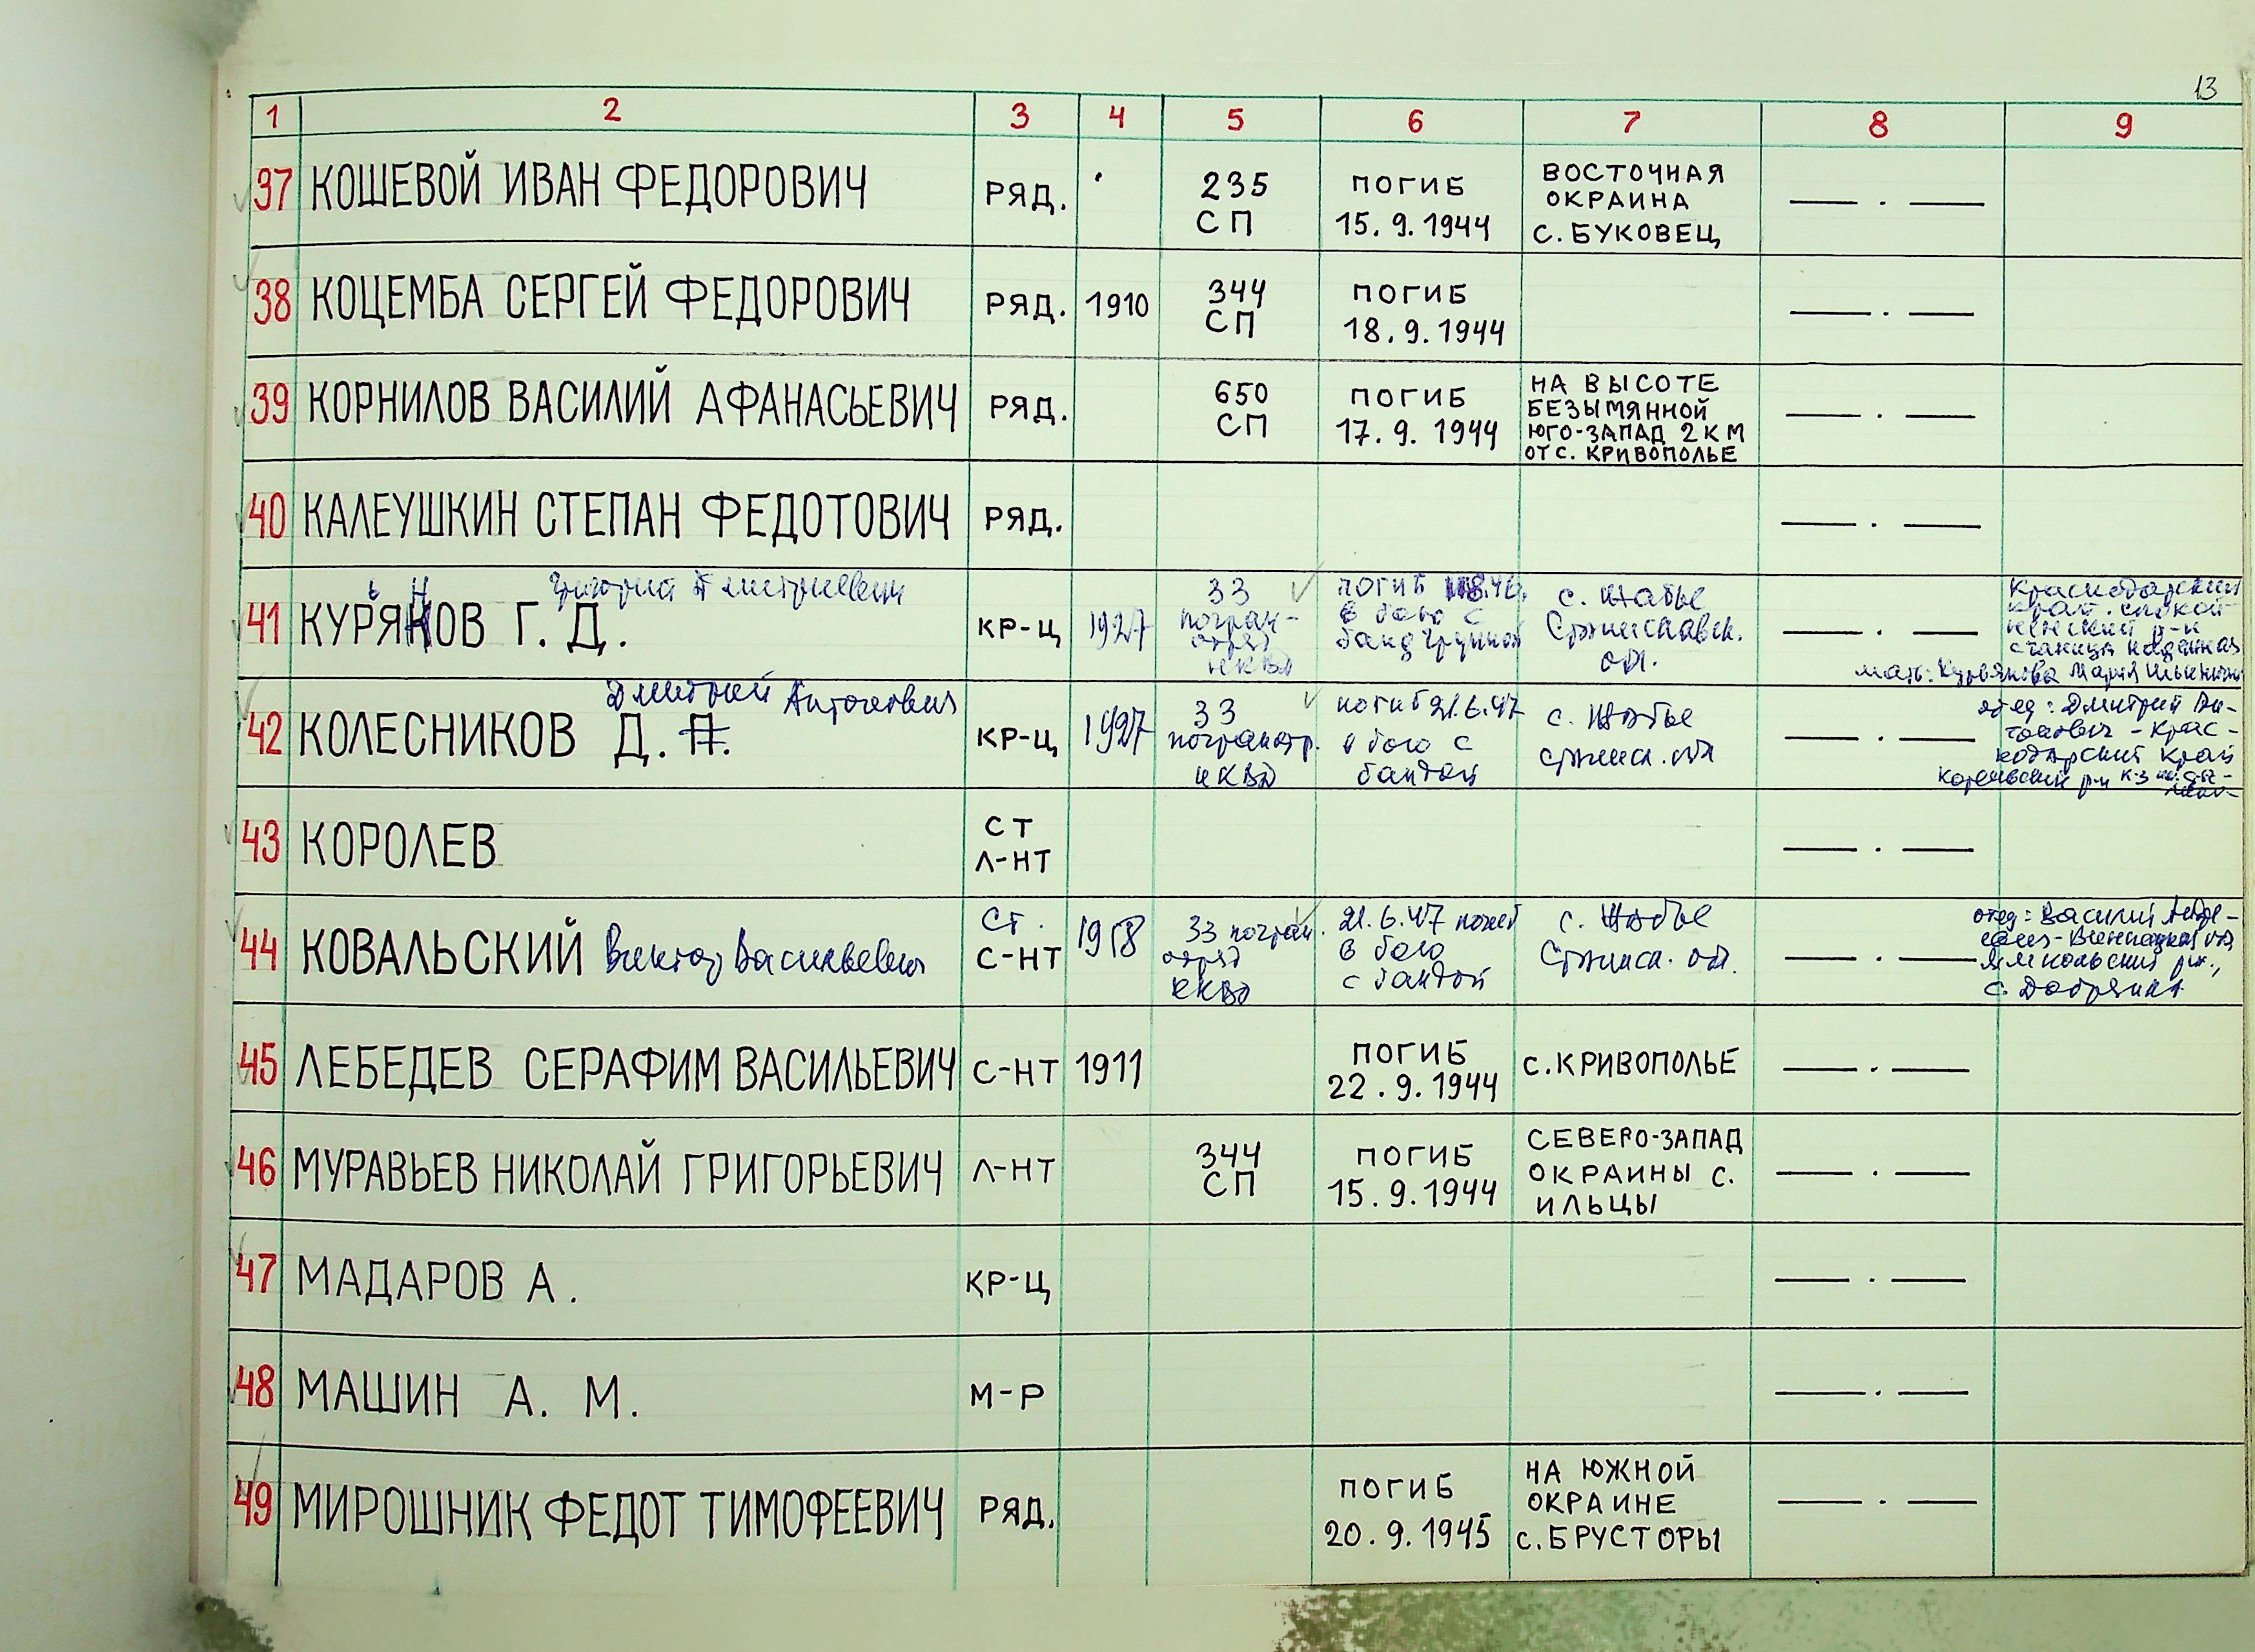 13
1 2 3 4 5 6 7 8 9
37 КОШЕВОЙ ИВАН ФЕДОРОВИЧ РЯД. 235 СП ПОГИБ 15.9.1944 ВОСТОЧНАЯ ОКРАИНА С. БУКОВЕЦ — . —
38 КОЦЕМБА СЕРГЕЙ ФЕДОРОВИЧ РЯД. 1910 344 СП ПОГИБ 18.9.1944 — . —
39 КОРНИЛОВ ВАСИЛИЙ АФАНАСЬЕВИЧ РЯД. 650 СП ПОГИБ 17.9.1944 НА ВЫСОТЕ БЕЗЫМЯННОЙ ЮГО-ЗАПАД 2 КМ ОТ С. КРИВОПОЛЬЕ — . —
40 КАЛЕУШКИН СТЕПАН ФЕДОТОВИЧ РЯД. — . —
41 КУРЯНОВ Г. Д. Григорий Дмитриевич КР-Ц 1927 33 погран-отряд НКВД погиб в бою с бандгруппой с. Жабье Станиславск. обл. — . — Краснодарский край станица мать: Курьянова Мария
42 КОЛЕСНИКОВ Д. А. Дмитрий Антонович КР-Ц 1927 33 погранотр. НКВД погиб 21.6.47 в бою с бандой с. Жабье Станисл. обл — . — отец: Дмитрий Ан-тонович - Крас-нодарский край
43 КОРОЛЕВ СТ Л-НТ — . —
44 КОВАЛЬСКИЙ Виктор Васильевич Ст. С-НТ 1918 33 погран. отряд НКВД 21.6.47 погиб в бою с бандой с. Жабье Станисл. обл. — . — отец: Василий Винницкая обл Ямпольский р-н., с. Добрянка
45 ЛЕБЕДЕВ СЕРАФИМ ВАСИЛЬЕВИЧ С-НТ 1911 ПОГИБ 22.9.1944 С. КРИВОПОЛЬЕ — . —
46 МУРАВЬЕВ НИКОЛАЙ ГРИГОРЬЕВИЧ Л-НТ 344 СП ПОГИБ 15.9.1944 СЕВЕРО-ЗАПАД ОКРАИНЫ С. ИЛЬЦЫ — . —
47 МАДАРОВ А. КР-Ц — . —
48 МАШИН А. М. М-Р — . —
49 МИРОШНИК ФЕДОТ ТИМОФЕЕВИЧ РЯД. ПОГИБ 20.9.1945 НА ЮЖНОЙ ОКРАИНЕ С. БРУСТОРЫ — . —